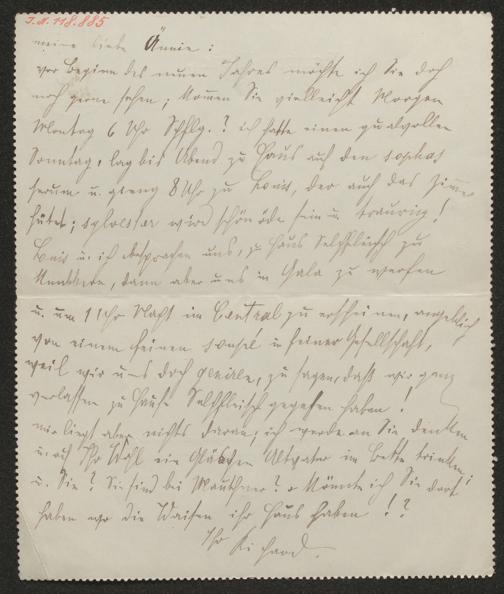 I.N. 118.885
meine liebe Ännie:
vor Beginn des neuen Jahres möchte ich Sie doch
noch gerne sehen; Können Sie vielleicht Morgen
Montag 6 Uhr ? ich hatte einen qualvollen
Sonntag, lag bis Abend zu Haus auf den sophas
herum u. gieng 8 Uhr zu Louis, der auch das Zimmer
hütet; sylvester wird schön öde sein u. traurig!
Louis u. ich besprachen uns, zu Haus Selchfleisch zu
dann aber uns in Gala zu werfen
u. um 11 Uhr Nachts im Central zu erscheinen, angeblich
von einem feinen souper in feiner Gesellschaft,
weil wir uns doch genieren, zu sagen, daß wir ganz
verlassen zu Hause Selchfleisch gegessen haben!
mir liegt aber nichts daran; ich werde an Sie denken
u. auf Ihr Wohl ein Gläschen Altvater im Bette trinken!
u. Sie? Sie sind bei Mauthner? Könnte ich Sie dort
haben wo die Waisen ihr Haus haben!?
Ihr Richard.